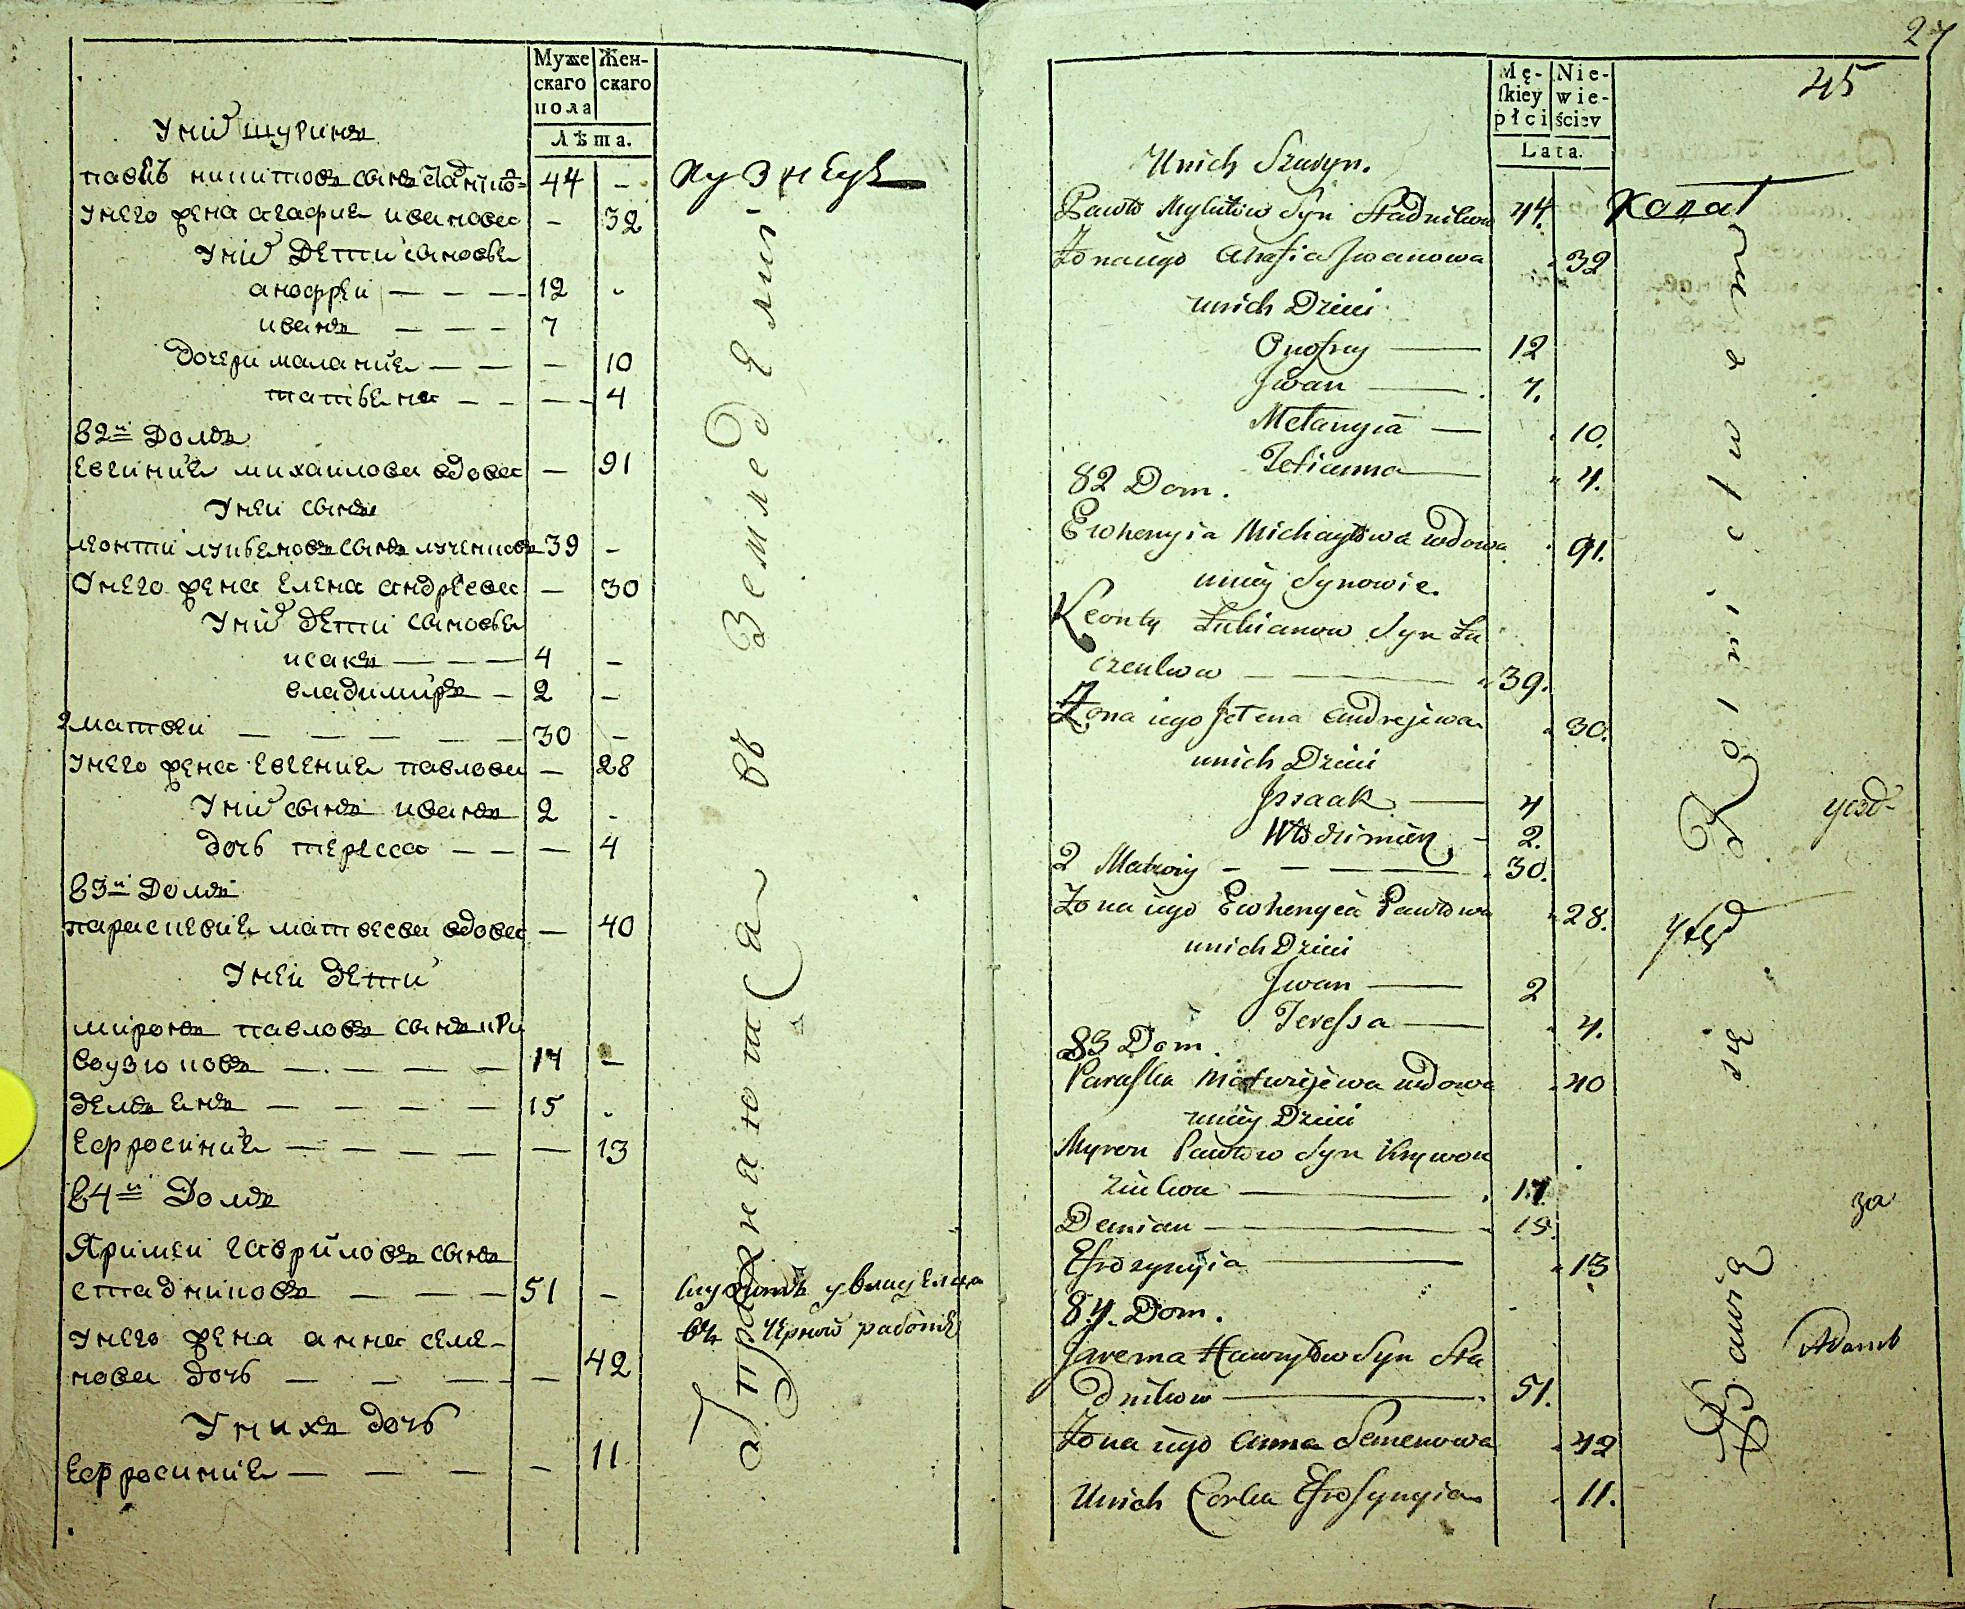 Муже
скаго
пола
Жен-
скаго
Лѣта.
У них шурин
павелъ никитовъ сынъ стаднико= 44 -
У него жена агафия иванова - 32
У них дети сыновья
анофреи — — — 12 -
иванъ — — — 7
дочери малания — — — 10
татьяна — — — 4
82й Домъ
Евгения михаилова вдова — 91
У неи сынъ
леонти лукьяновъ сынъ лученковъ 39 -
У него жена Елена андреева — 30
У них дети сыновья
исакъ — — — 4 -
владимиръ — 2 -
2 матвеи — — — — — 30 -
У него жена Евгения павлова — 28
У них сынъ иванъ 2 -
дочь тересса — — — 4
83й Домъ
параскевия матвеева вдова — 40
У неи дети
миронъ павловъ сынъ кри
воузюковъ — — — — 17 —
демьянъ — — — — 15 -
Ефросиния — — — — — 13
84й Домъ
Яримеи гавриловъ сынъ
стадниковъ — — — 51 -
У него жена анна семе-
нова дочь — — — — 42
У нихъ дочь
Ефросиния — — — - 11
кузнецъ
Упражняются въ Земледелии
служитъ у владельца
въ черной работе
27
45
Mę-
skiey
płci
Nie-
wie-
ściey
Lata.
Unich Szuryn.
Pawło Mykitow Syn Stadnikow 44.
Żona iego Ahafia Iwanowa 32
unich Dzieci
Onofrey — 12
Iwan — 7.
Mełanyia — 10.
Tetianna — 4.
82 Dom.
Ewhenyia Michayłowa wdowa 91.
uniey Synowie.
Leonty Łukianow Syn Łu
czenkow — 39.
Żona iego Jełena Andrejewa 30.
unich Dzieci
Issaak — 4
Włodzimierz - 2.
2 Matwiy - — — — 30.
Żona iego Ewhenyia Pawłowa 28.
unich Dzieci
Iwan — 2
Teressa — 4.
83 Dom.
Paraska Matwijewa wdowa 40
uniey Dzieci
Myron Pawłow Syn Krywou
ziukow — 17.
Demian — 15.
Efrozynyia — 13
84. Dom.
Jarema Hawryłow Syn Sta
dnikow — 51.
Żona iego Anna Semenowa 42
Unich Corka Efrosynyia 11.
Kowal
Bawią się Rolnictwem
за